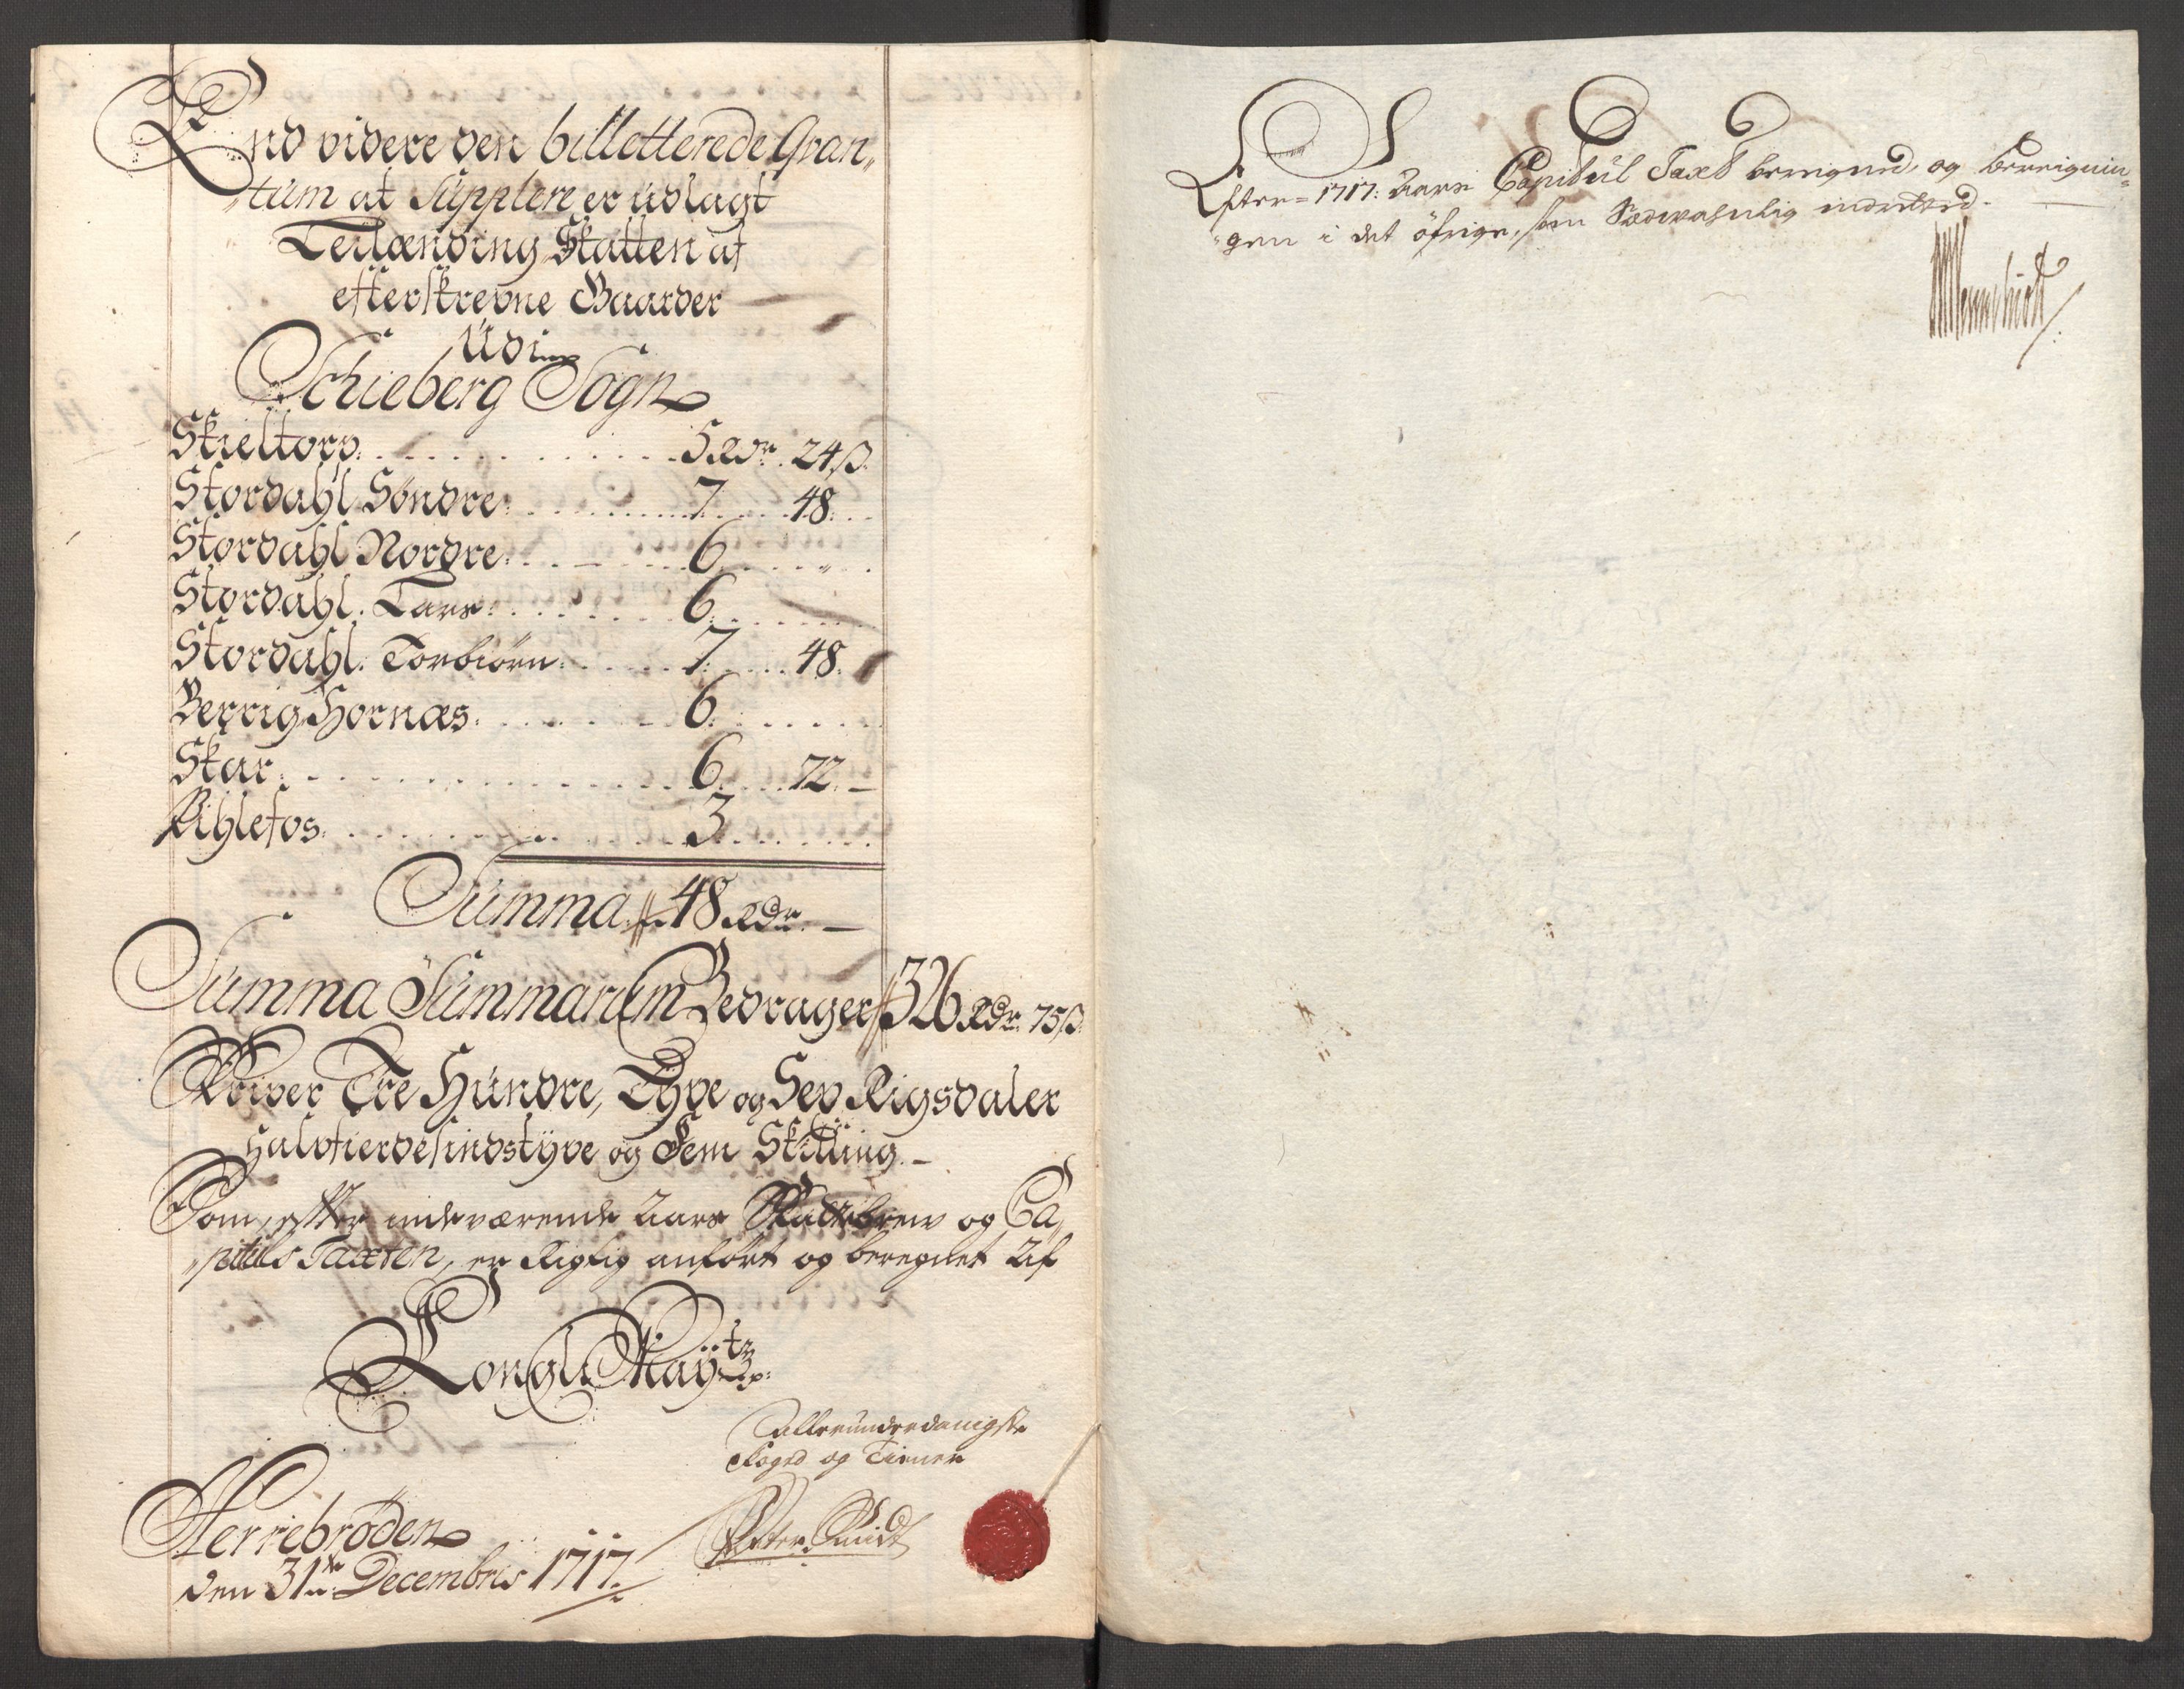 End videre den billetterede Qvan„
„tum at Supplere er udlagt
Leilænding Skatten af
efterskrevne Gaarder
Udi
Schieberg Sogn
Skieltorp. 5 Rdr. 24 ß.
Stordahl Söndre. 7. 48.
Stordahl Nordre. 6. „.
Stordahl. Lars. 6.
Stordahl. Torbiörn. 7. 48.
Berrig Hornæs. 6.
Skar. 6. 72. –
Kihlefos. 3.
Summa 48 Rdr. –
Summa Summarum Bedrager 326 Rdr. 75 ß.
Skriver Tre Hundre, Tyve og Sex Rigsdaler
Halvfierdesindstyve og Fem Skilling. –
Som, efter indeværende Aars Skattebrew og Ca„
„pituls Taxten, er Rigtig anfört og beregnet Af
Kongl. May.ts
allerunderdanigste
Foged og Tiener
Peter Smidt
Herrebröden
den 31te Decembris 1717.
Efter 1717: Aars Capitul Taxt beregned, og bereignin„
„gen i det öfrige, som Sædvahnlig indretted.